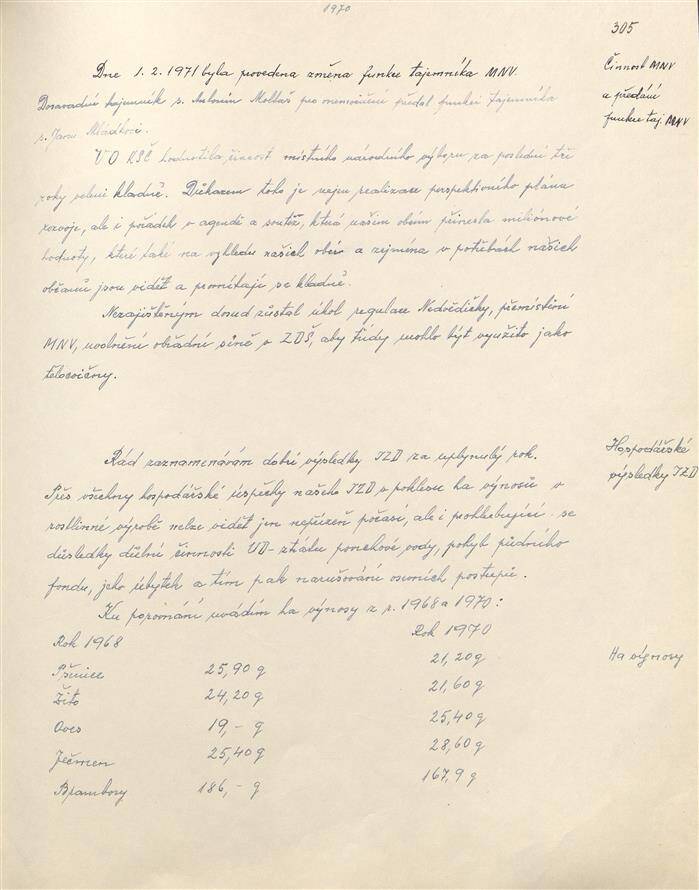 1970
305
Dne 1. 2. 1971 byla provedena změna funkce tajemníka MNV.
Činnost MNV
a předání
funkce taj. MNV
Dosavadní tajemník s. Antonín Moltaš pro onemocnění předal funkci tajemníka
s. Janu
VO KSČ hodnotila činnost místního národního výboru za poslední tři
roky velmi kladně. Důkazem toho je nejen realizace perspektivního plánu
rozvoje, ale i pořádek v agendě a soutěž, která našim obcím přinesla miliónové
hodnoty, které také na vzhledu našich obcí a zejména v potřebách našich
občanů jsou vidět a promítají se kladně.
Nezajištěným dosud zůstal úkol regulace Nedvědičky, přemístění
MNV, uvolnění obřadní síně v ZDŠ, aby třídy mohlo být využito jako
tělocvičny.
Rád zaznamenávám dobré výsledky JZD za uplynulý rok.
Hospodářské
výsledky JZD
Přes všechny hospodářské úspěchy našeho JZD v poklesu ha výnosů v
rostlinné výrobě nelze vidět jen nepřízeň počasí, ale i prohlubující se
důsledky důlní činnosti UD - ztrátu povrchové vody, pohyb půdního
fondu, jeho úbytek a tím pak narušování osevních postupů.
Ku porovnání uvádím ha výnosy z r. 1968 a 1970:
Ha výnosy
Rok 1968 Rok 1970
Pšenice 25,90 q 21,20 q
Žito 24,20 q 21,60 q
Oves 19,- q 25,40 q
Ječmen 25,40 q 28,60 q
Brambory 186,- q 167,9 q